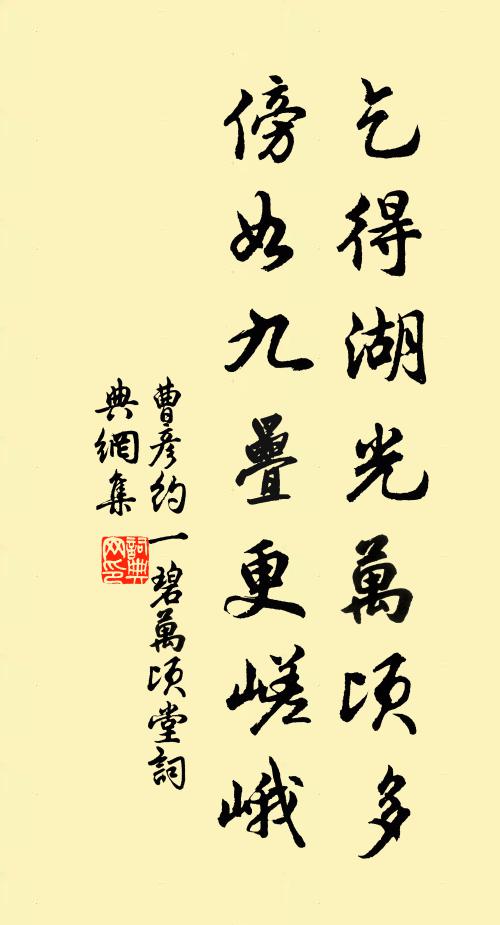 乞得湖光萬頃多
傍如九疊更嵯峨
曹彥約一碧萬頃堂詞
典網集
詞典網印